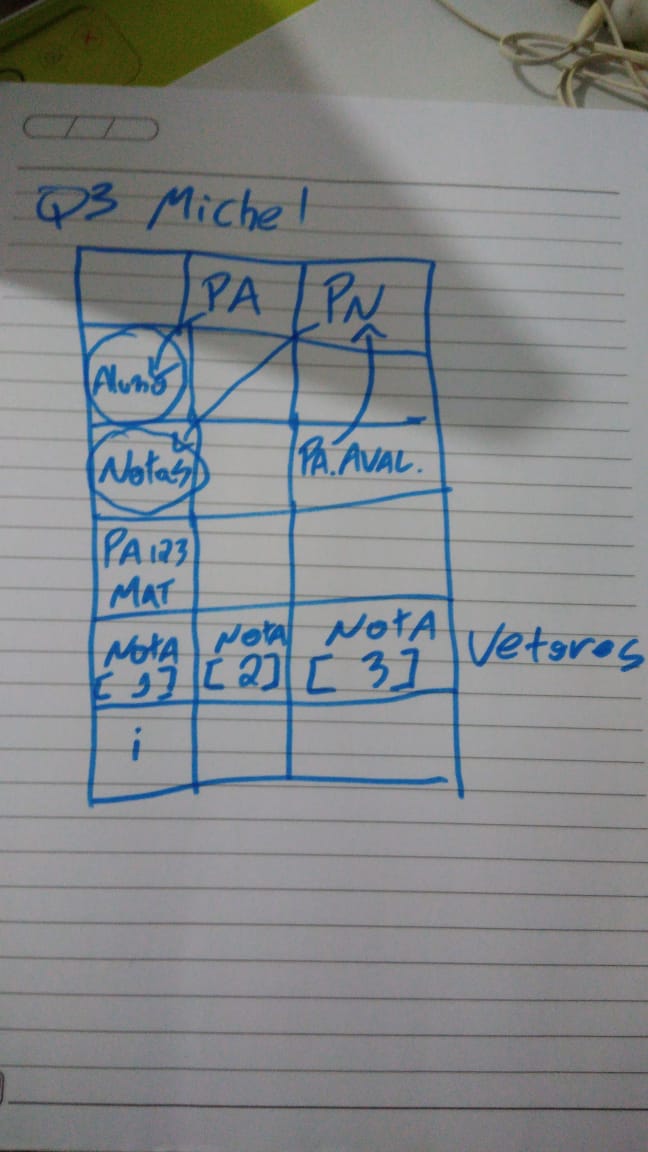 Q3 Michel
PA PN
Aluno
Notas PA.AVAL.
PA 123
MAT
NotA NotA NotA
[1] [2] [3] Vetores
i